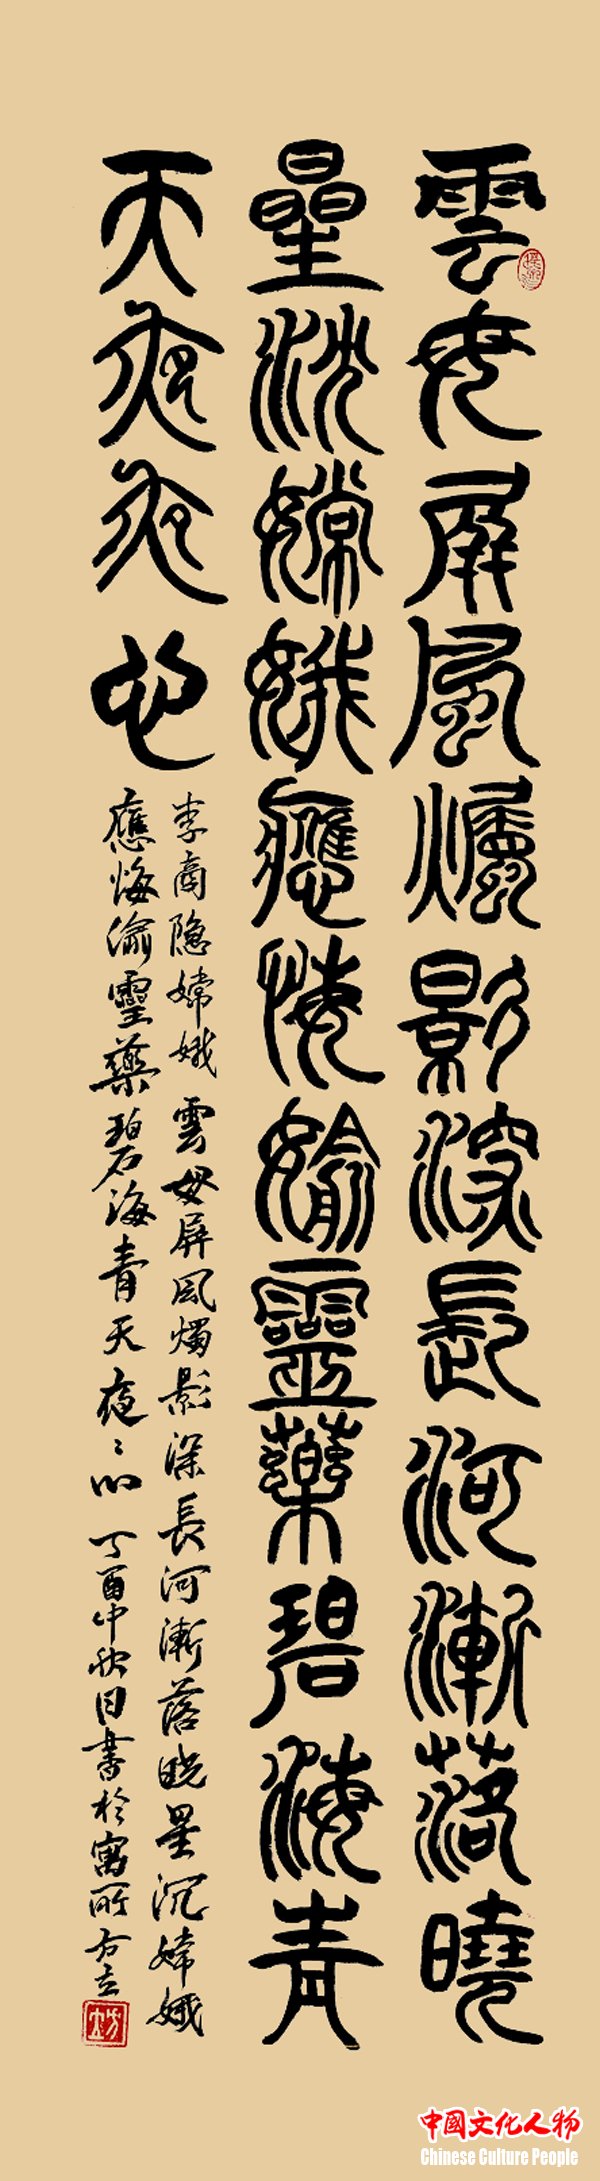 雲母屏風燭影深長河漸落曉
星沈嫦娥應悔媮靈藥碧海青
天夜夜心
李商隐嫦娥 雲母屏風燭影深長河漸落曉星沉嫦娥
應悔偷靈藥碧海青天夜〻心 丁酉中秋日書於寓所方立
中國文化人物
Chinese Culture People